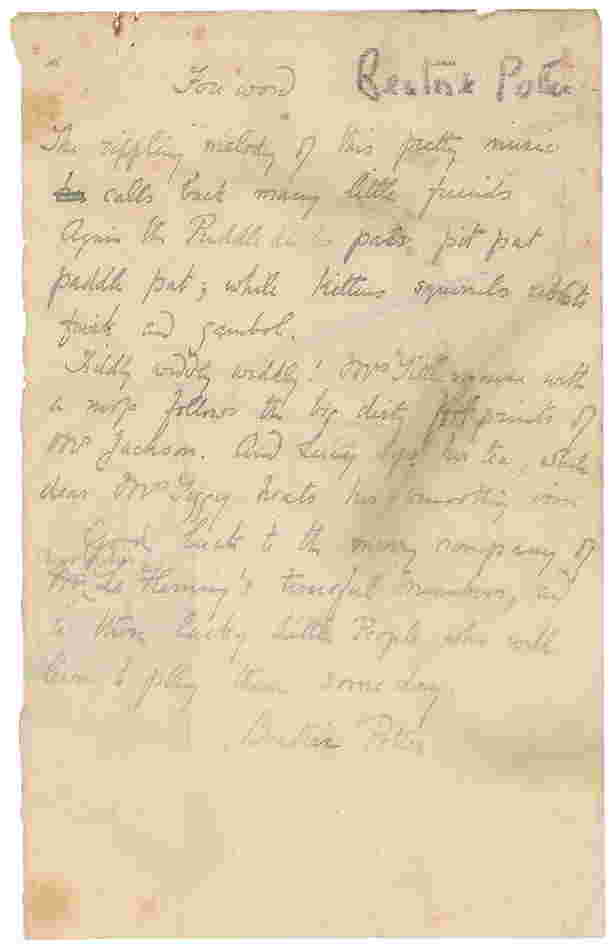 Foreword Beatrix Potter
The rippling melody of this pretty music
calls back many little friends
Again the Puddle ducks pats, pit pat
paddle pat; while kittens squirrels rabbits
frisk and gambol.
Tiddly widdly widdly! Mrs Tittlemouse with
a mop follows the big dirty footprints of
Mr Jackson. And Lucy sips her tea, while
dear Mrs Tiggy heats her smoothing iron
Good luck to the merry company of
Le Fleming's tuneful numbers, and
to those lucky Little People who will
learn to play them some day.
Beatrix Potter